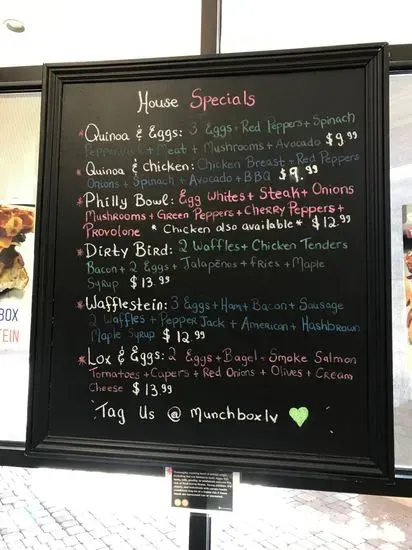 House Specials
* Quinoa & Eggs: 3 Eggs + Red Peppers + Spinach
Pepperjack + Meat + Mushrooms + Avocado $9.99
* Quinoa & Chicken: Chicken Breast + Red Peppers
Onions + Spinach + Avocado + BBQ $9.99
* Philly Bowl: Egg Whites + Steak + Onions
Mushrooms + Green Peppers + Cherry Peppers +
Provolone * Chicken also available * $12.99
* Dirty Bird: 2 Waffles + Chicken Tenders
Bacon + 2 Eggs + Jalapeños + Fries + Maple
Syrup $13.99
* Wafflestein: 3 Eggs + Ham + Bacon + Sausage
2 Waffles + Pepper Jack + American + Hashbrown
Maple Syrup $12.99
* Lox & Eggs: 2 Eggs + Bagel + Smoke Salmon
Tomatoes + Capers + Red Onions + Olives + Cream
Cheese $13.99
Tag Us @ munchboxlv
BOX